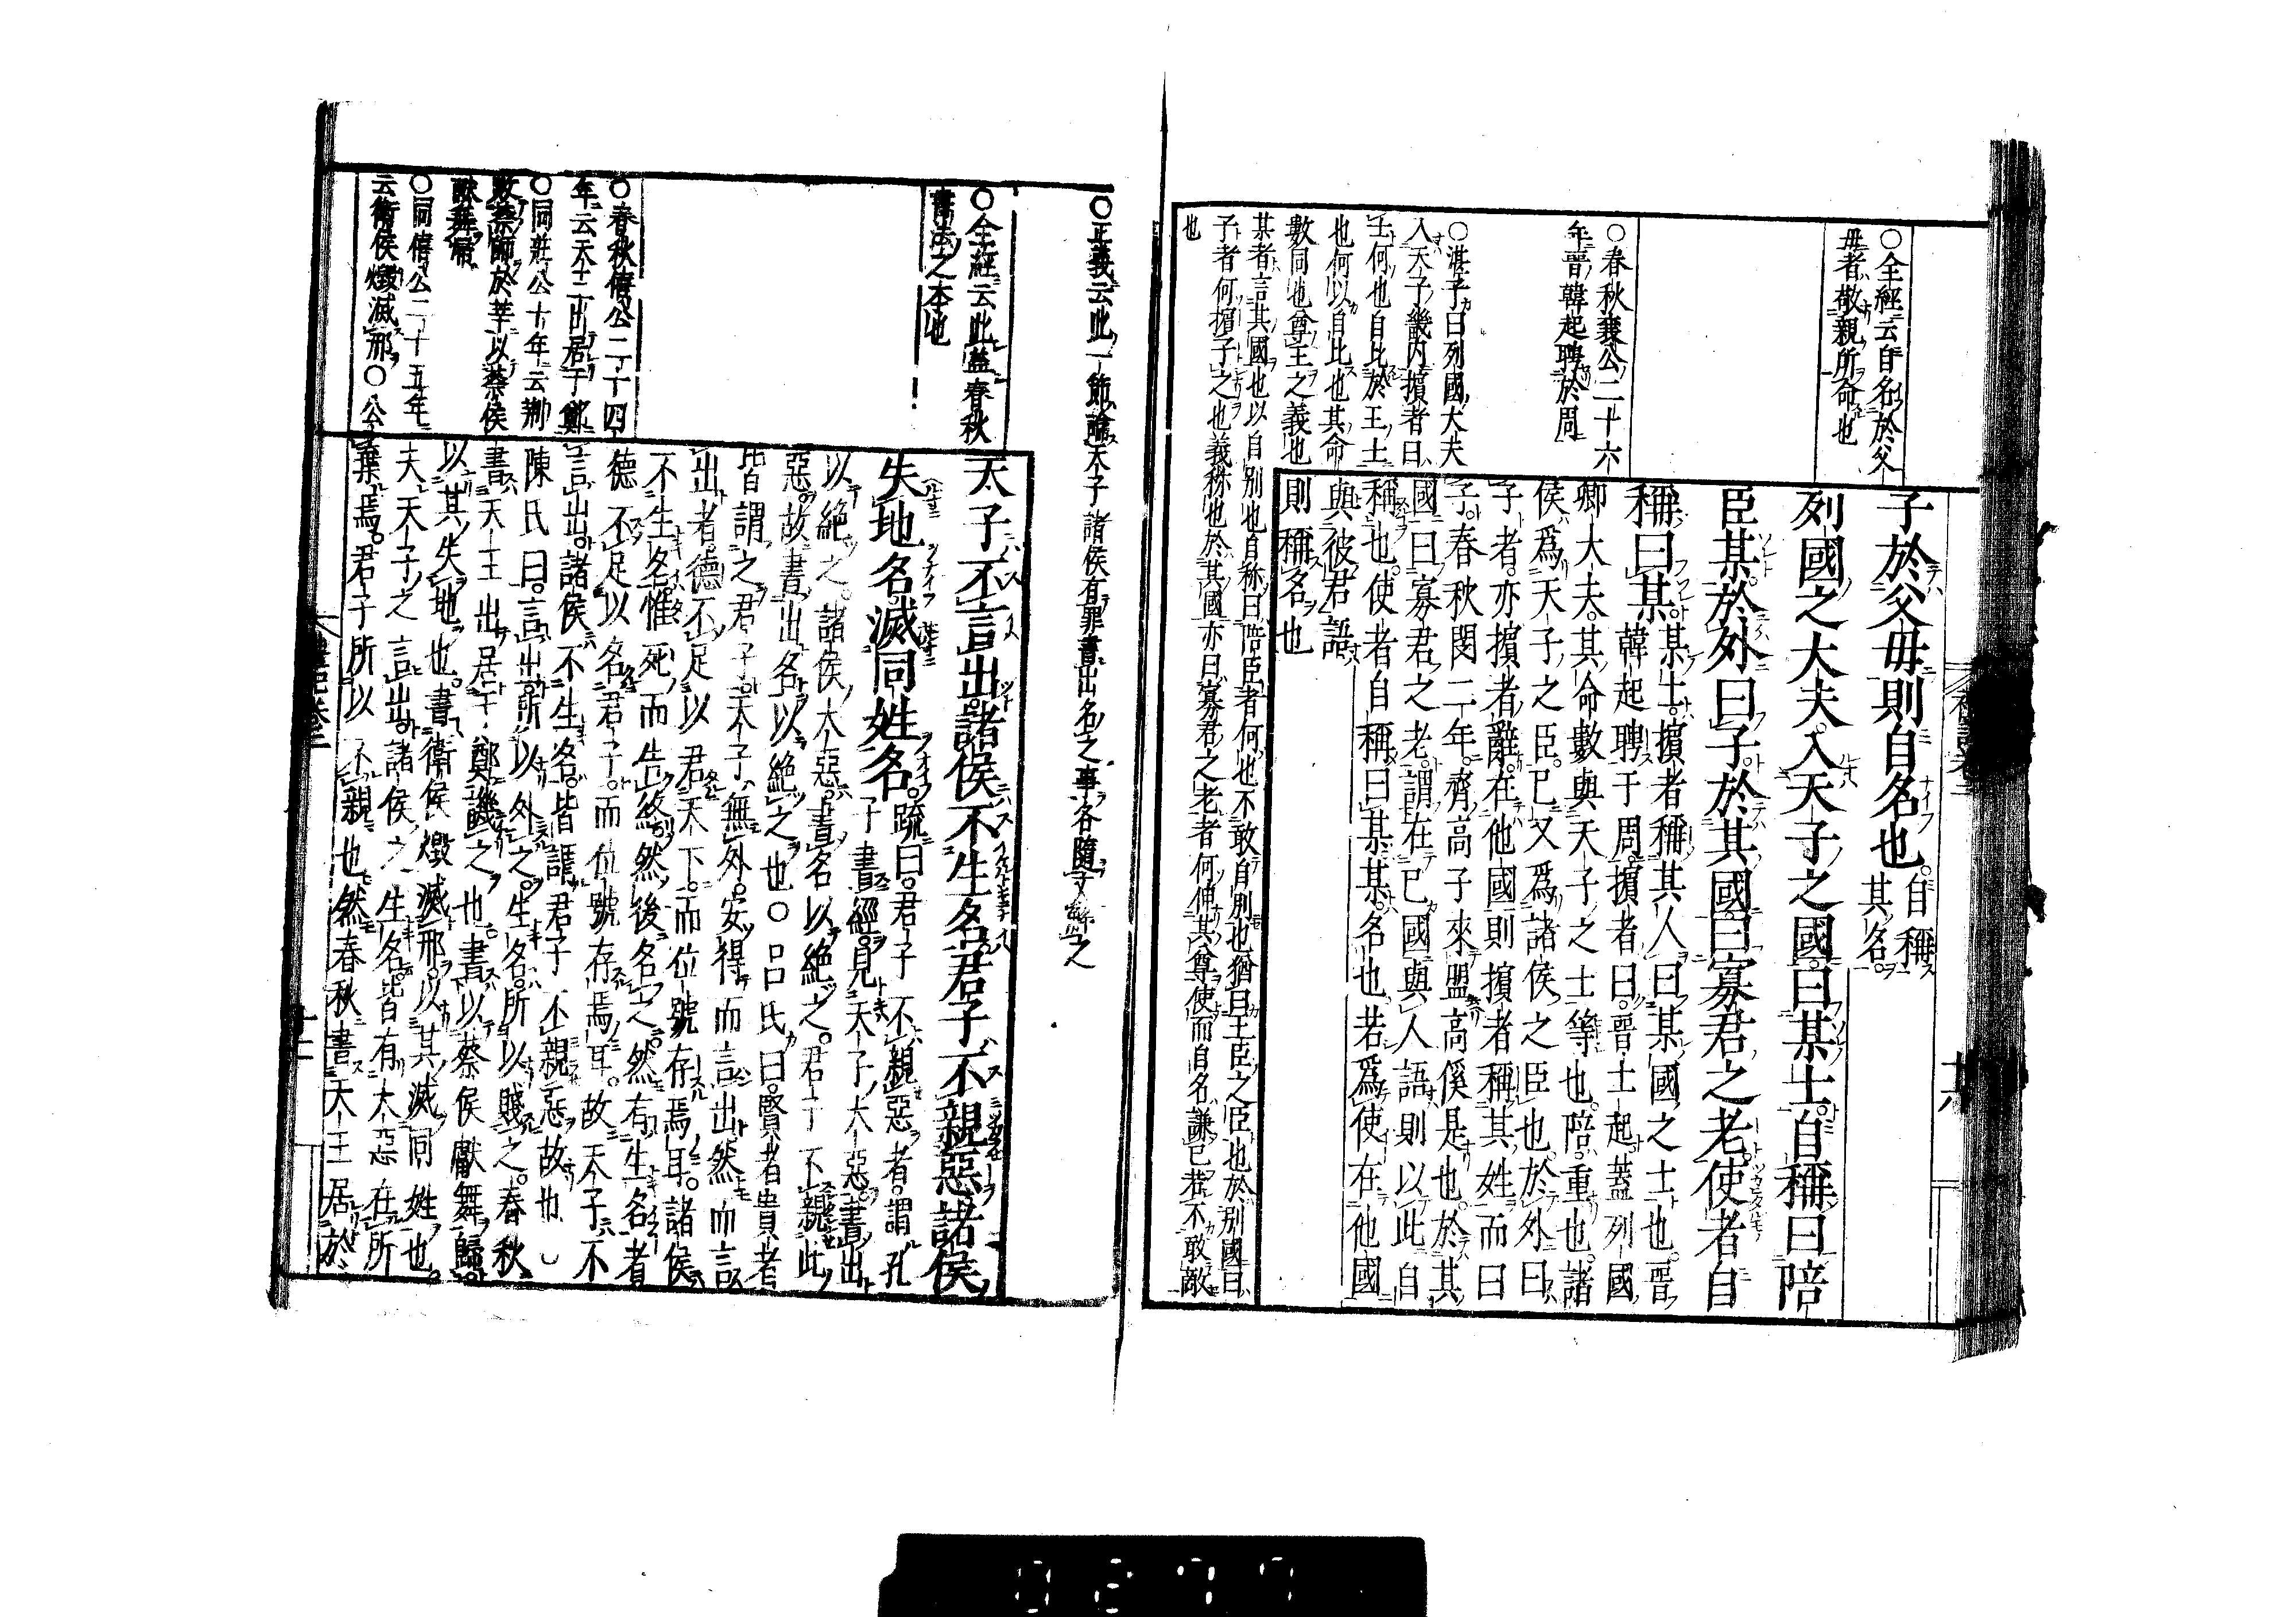 ○全經云自名於父
母者敬親所命也
○春秋襄公二十六
年晉韓起聘於周
○湛子曰列國大夫
入天子畿内擯者曰
士何也自比於王士
也何以自比也其命
數同也尊王之義也
某者言其國也以自別也自称曰陪臣者何也不敢自別也猶曰王臣之臣也於別國曰
子者何擯子之也義称也於其國亦曰寡君之老者何伸其尊使而自名謙已甚不敢敵
也
子於父母則自名也自稱
其名
列國之大夫入天子之國曰某士自稱曰陪
臣某於外曰子於其國曰寡君之老使者自
稱曰某某士擯者稱其人曰某國之士也晉
韓起聘于周擯者曰晉士起蓋列國
卿大夫其命數與天子之士等也陪重也諸
侯爲天子之臣已又爲諸侯之臣也於外曰
子者亦擯者辭在他國則擯者稱其姓而曰
子春秋閔二年齊高子來盟高傒是也於其
國曰寡君之老謂在已國與人語則以此自
稱也使者自稱曰某某名也若爲使在他國
與彼君語
則稱名也
○正義云此一節論天子諸侯有罪書出名之事各隨文解之
○全經云此蓋春秋
書法之本也
○春秋僖公二十四
年云天王出居于鄭
○同莊公十年云荆
敗蔡師於莘以蔡侯
獻舞歸
○同僖公二十五年
云衛侯燬滅邢○公
天子不言出諸侯不生名君子不親惡諸侯
失地名滅同姓名疏曰君子不親惡者謂孔
子書經見天子大惡書出
以絶之諸侯大惡書名以絶之君子不親此
惡故書出名以絶之也○呂氏曰賢者貴者
皆謂之君子天子無外安得而言出然而言
出者德不足以君天下而位號存焉耳諸侯
不生名惟死而告終然後名之然有生名者
德不足以名君子而位號存焉耳故天子不
言出諸侯不生名皆謂君子不親惡故也○
陳氏曰言出所以外之生名所以賤之春秋
書天王出居于鄭譏之也書以蔡侯獻舞歸
以其失地也書衛侯燬滅邢以其滅同姓也
夫天子之言出諸侯之生名皆有大惡在所
棄焉君子所以不親也然春秋書天王居於